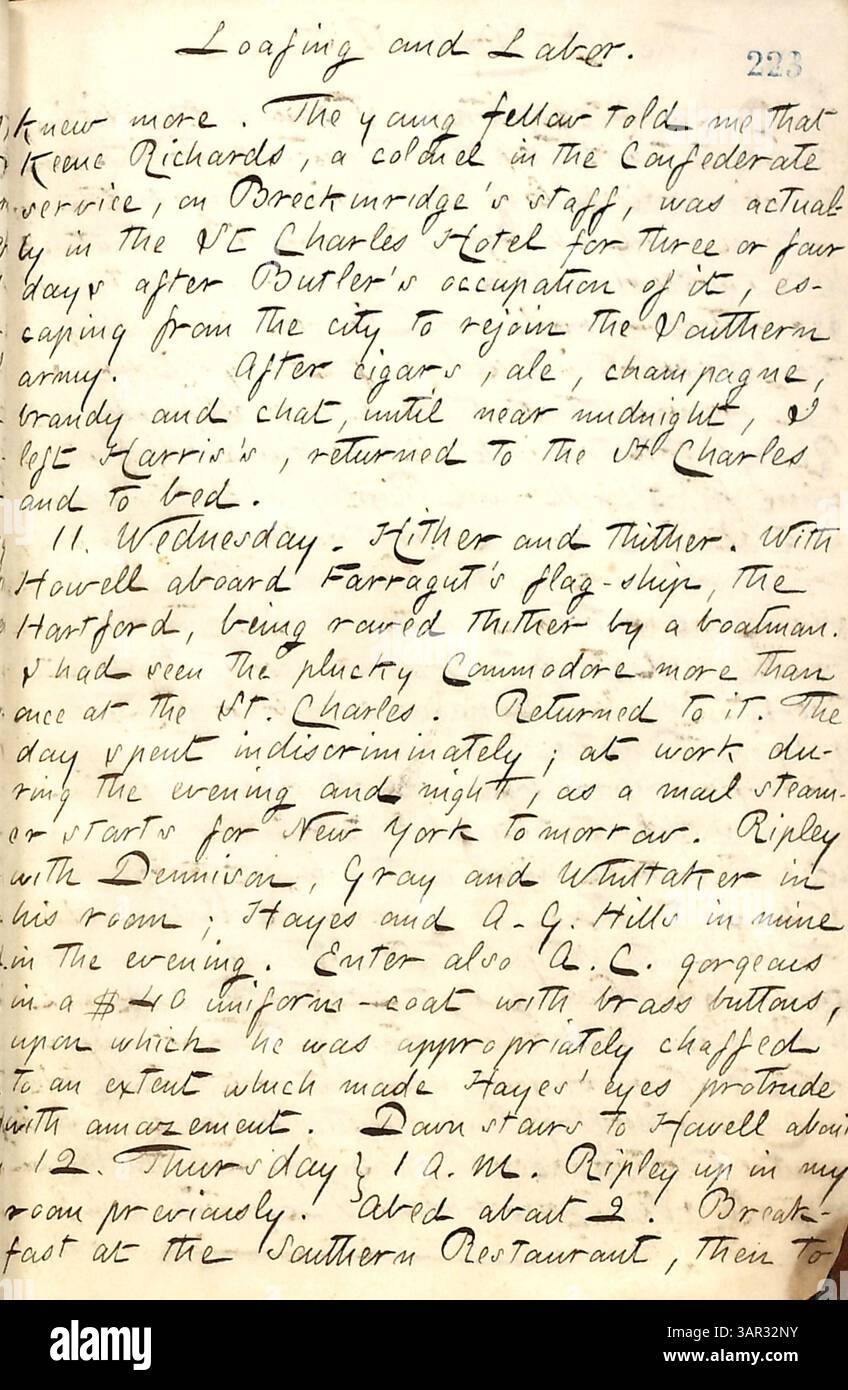 Loafing and Labor.
223
knew more. The young fellow told me that
Keene Richards, a colonel in the Confederate
service, on Breckinridge's staff, was actual-
ly in the St Charles Hotel for three or four
days after Butler's occupation of it, es-
caping from the city to rejoin the Southern
army. After cigars, ale, champagne,
brandy and chat, until near midnight, I
left Harris's, returned to the St Charles
and to bed.
11. Wednesday. Hither and thither. With
Howell aboard Farragut's flag-ship, the
Hartford, being rowed thither by a boatman.
I had seen the plucky Commodore more than
once at the St. Charles. Returned to it. The
day spent indiscriminately; at work du-
ring the evening and night, as a mail steam-
er starts for New York tomorrow. Ripley
with Dennison, Gray and Whittaker in
his room; Hayes and A. G. Hills in mine
in the evening. Enter also A. C. gorgeous
in a $40 uniform-coat with brass buttons,
upon which he was appropriately chaffed
to an extent which made Hayes' eyes protrude
with amazement. Down stairs to Howell about
12. Thursday } 1 A. M. Ripley up in my
room previously. Abed about 2. Break-
fast at the Southern Restaurant, then to
alamy
Image ID: 3AR32NY
www.alamy.com